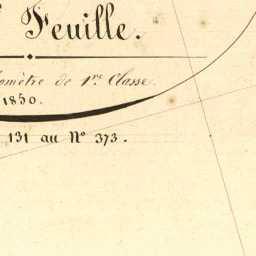 Feuille.
omètre de 1re Classe.
1850.
131 au No 373.